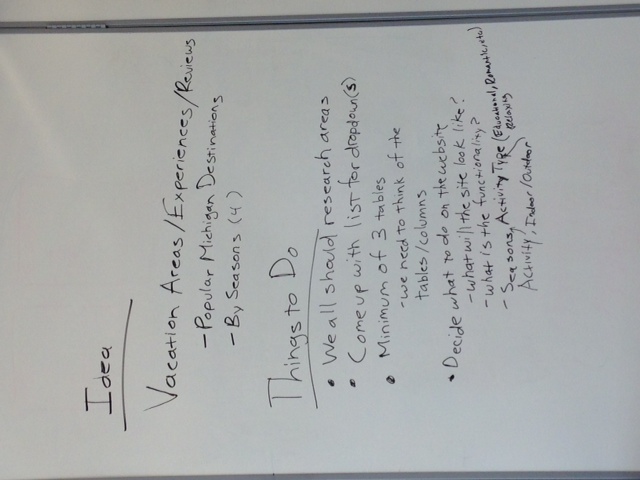 Idea
Vacation Areas/Experiences/Reviews
- Popular Michigan Destinations
- By Seasons (4)
Things to Do
• We all should research areas
• Come up with list for dropdown(s)
• Minimum of 3 tables
- we need to think of the
tables/columns
• Decide what to do on the website
- what will the site look like?
- what is the functionality?
- Seasons, Activity Type (Educational, Romantic, etc)
Relaxing
Activity, Indoor/Outdoor